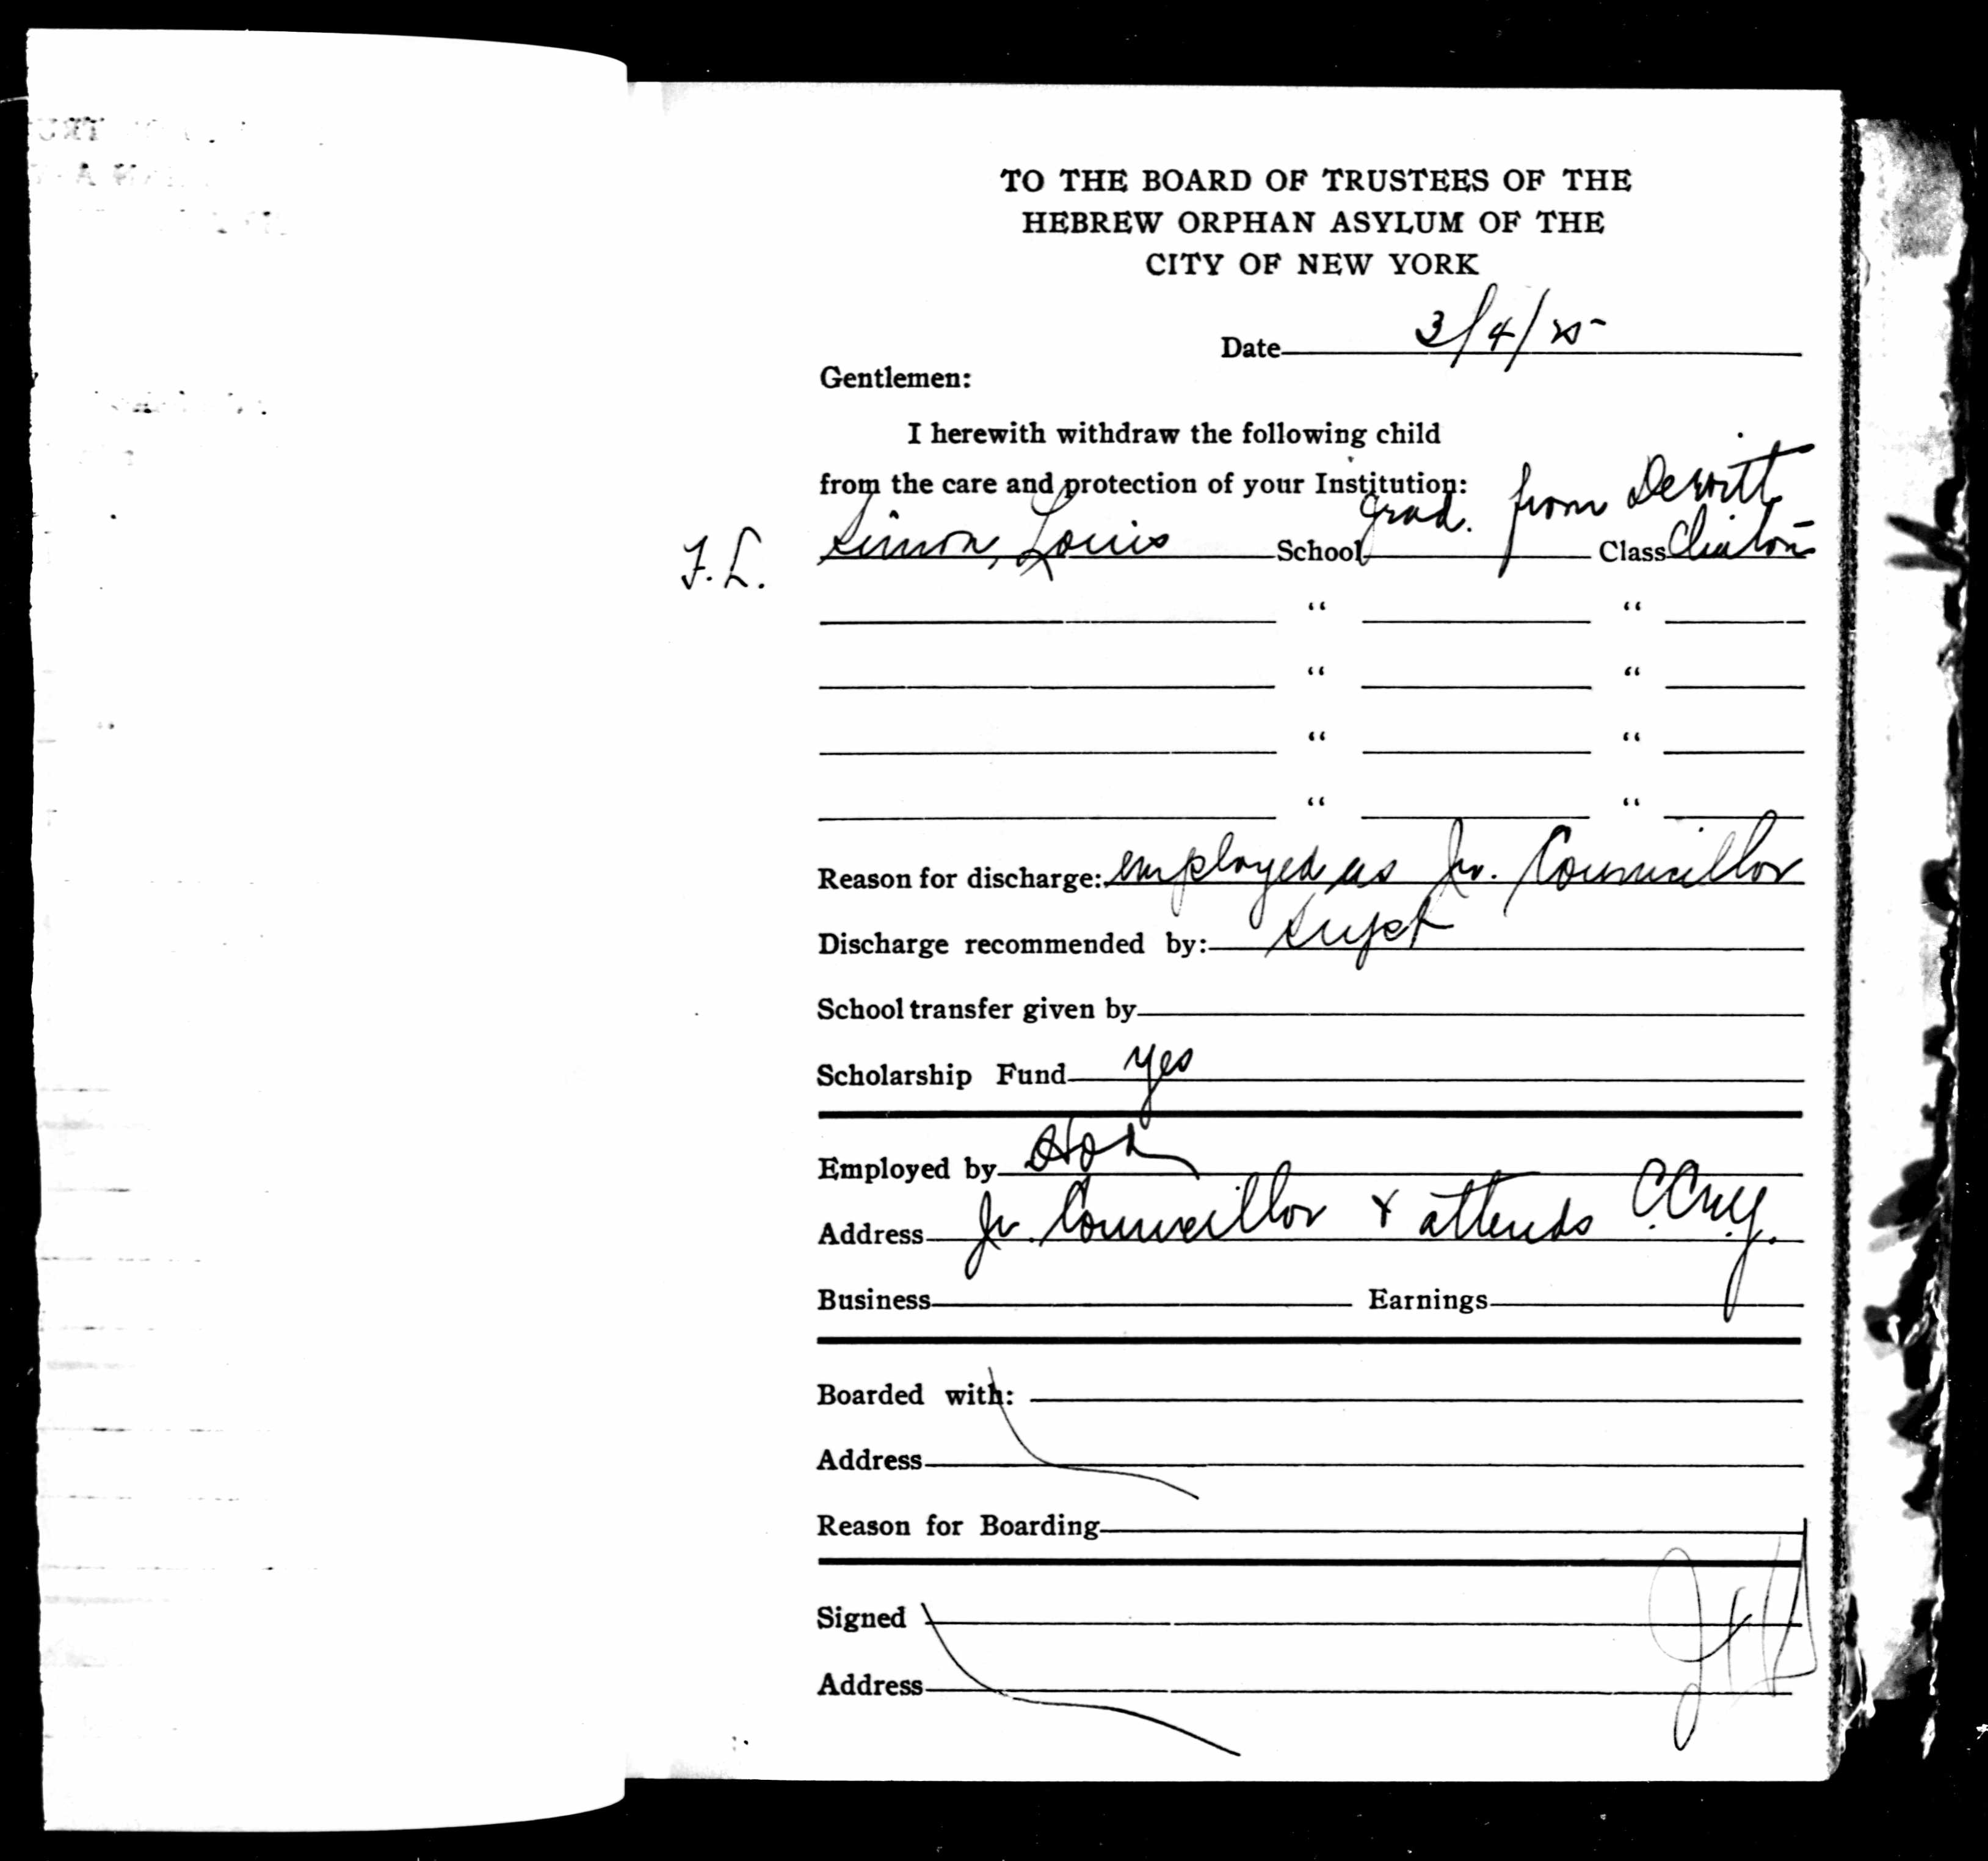 TO THE BOARD OF TRUSTEES OF THE
HEBREW ORPHAN ASYLUM OF THE
CITY OF NEW YORK
Date 3/4/25
Gentlemen:
I herewith withdraw the following child
from the care and protection of your Institution:
F.L. Simon, Louis School grad. from Dewitt Class Clinton
“ “
“ “
“ “
“ “
Reason for discharge: employed as Jr. Councillor
Discharge recommended by: Supt
School transfer given by
Scholarship Fund yes
Employed by HOA
Address Jr. Councillor & attends C.C.N.Y.
Business Earnings
Boarded with:
Address
Reason for Boarding
Signed
Address